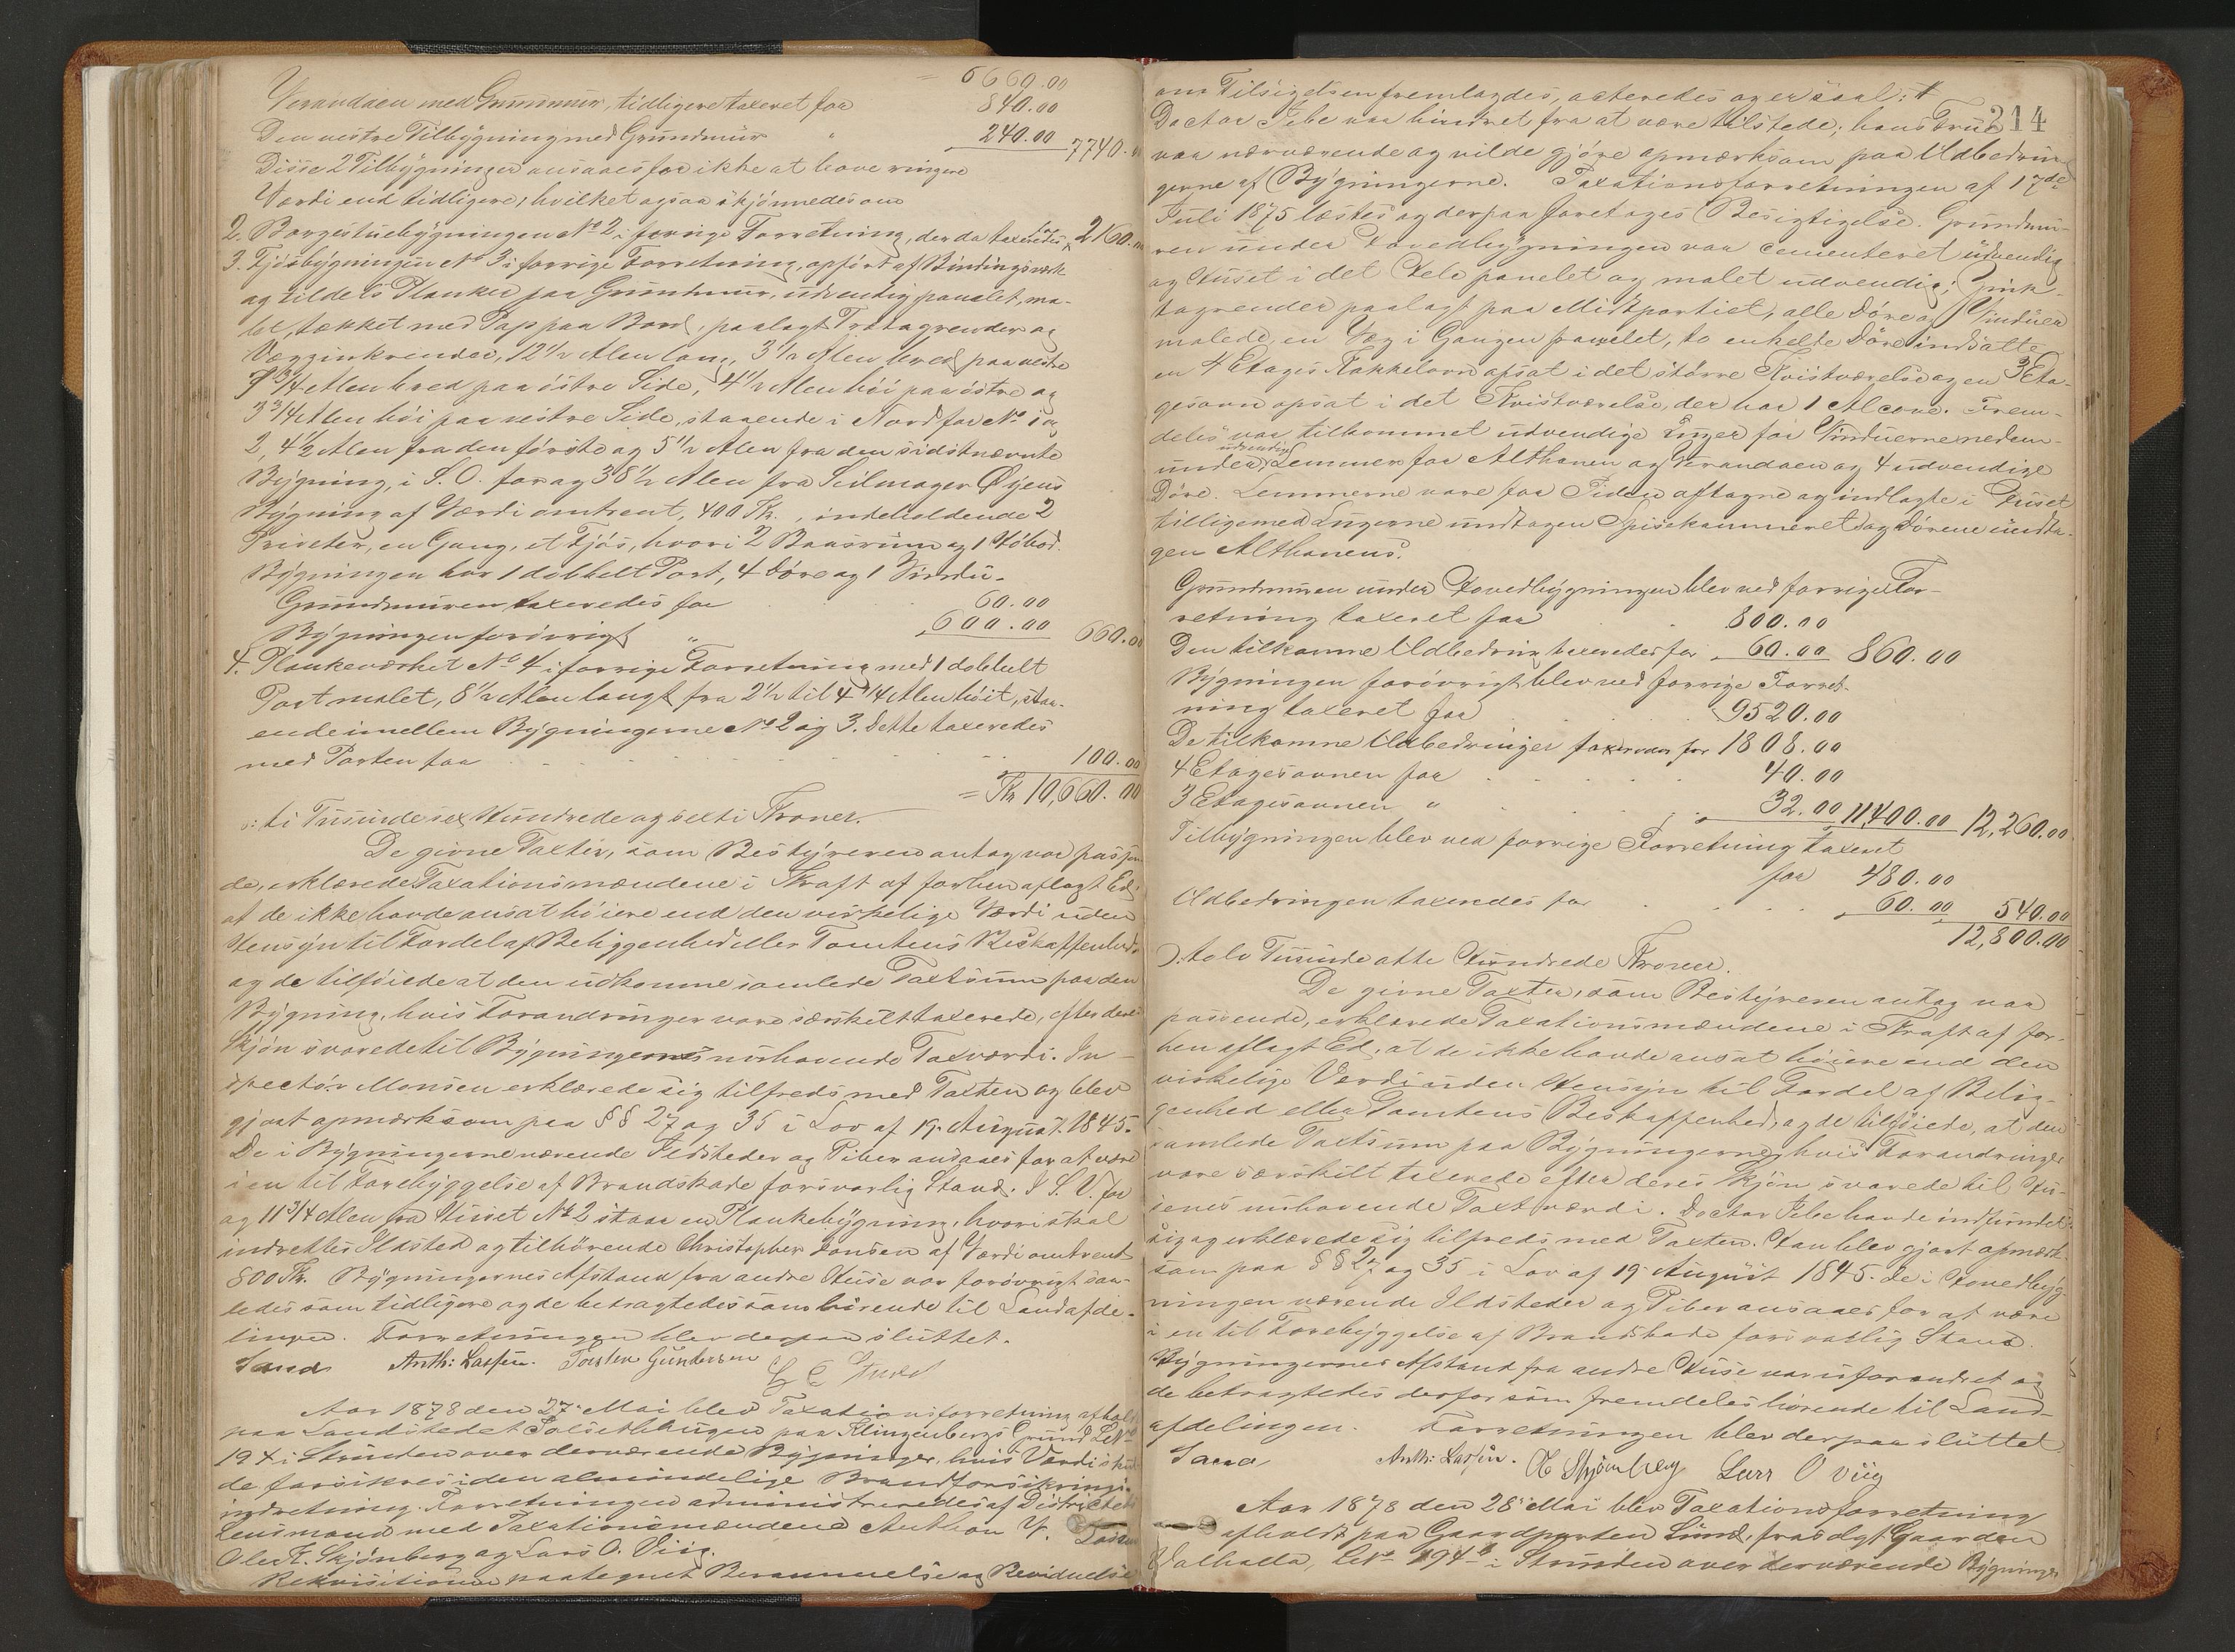 = 6660.00
Verandaen med Grundmur, tidligere taxeret for 840.00
Den vestre Tilbygning med Grundmür " 240.00 7740.00
Disse 2 Tilbygninger ansaaes for ikke at have ringere
Værdi end tidligere, hvilket ogsaa skjönnedes om
2. Borgestuebygningen No 2 i forrige Forretning, der da taxeredes for 2160.00
3. Fjösbygningen No 3 i forrige Forretning, opfört af Bindingsværk
og tildels Planker paa Grundmur, udvendig panelet, ma-
let, tækket med Pap paa Bord, paalagt Trætagrender og
Vægzinkrender, 12 1/2 Alen lang, 3 1/2 Alen bred paa vestre
7 3/4 Alen bred paa östre Side, 4 1/2 Alen höi paa östre og
3 3/4 Alen höi paa vestre Side, staaende i Nord for No 1 og
2, 4 1/2 Alen fra den förste og 5 1/2 Alen fra den sidstnævnte
Bygning, i S.O. for og 38 1/2 Alen fra Seilmager Öyens
Bygning af Værdi omtrent, 400 Kr., indeholdende 2
Priveter, en Gang, et Fjös, hvori 2 Baasrum og 1 Höbod.
Bygningen har 1 dobbelt Port, 4 Döre og 1 Vindu.
Grundmuren taxeredes for 60.00
Bygningen forövrigt " 600.00 660.00
4. Plankeværket No 4 i forrige Forretning med 1 dobbelt
Port malet, 8 1/2 Alen langt fra 2 1/2 til 4 3/4 Alen höit, staa-
ende imellem Bygningerne No 2 og 3. Dette taxeredes
med Porten for 100.00
= Kr 10,660.00
o: ti Tusinde sex Hundrede og sexti Kroner.
De givne Taxter, som Bestyreren antog var passen
de, erklærede Taxationsmændene i Kraft af forhen aflagt Ed,
at de ikke havde ansat höiere end den virkelige Værdi uden
Hensyn til Fordel af Beliggenhed eller Tomtens Beskaffenhed,
og de tilföiede at den udkomne samlede Taxtsum paa den
Bygning, hvis Forandringer vare særskilt taxerede, efter deres
Skjön svarede til Bygningernes nuhavende Taxværdi. In-
spectör Monsen erklærede sig tilfreds med Taxten og blev
gjort opmærksom paa §§ 27 og 35 i Lov af 19. August 1845.
De i Bygningerne værende Ildsteder og Piber ansaaes for at være
i en til Forebyggelse af Brandskade forsvarlig Stand. I S.V. for
og 11 3/4 Alen fra Huset No 2 staar en Plankebygning, hvori skal
indrettes Ildsted og tilhörende Christopher Jonsen af Værdi omtrent
800 Kr. Bygningernes Afstand fra andre Huse var forövrigt saa-
ledes som tidligere og de betragtedes som hörende til Landafde-
lingen. Forretningen blev derpaa sluttet.
Sand Anth: Larsen. Torsten Gundersen
Aar 1878 den 27. Mai blev Taxationsforretning afholdt
paa Landstedet Solsethhaugen paa Klingenbergs Grund Litr
194 i Strinden over derværende Bygninger, hvis Værdi skul
de forsikres i den almindelige Brandforsikrings
indretning. Forretningen administreredes af Districtets
Lensmand med Taxationsmændene Anthon Y. Larsen
Ole K. Skjönberg og Lars O. Viig.
Rekvisitionen paategnet Berammelse og Bevidnelse
om Tilsigelsen fremlagdes, acteredes og er saal: #
214
Doctor Jebe var hindret fra at være tilstede; hans Frue
var nærværende og vilde gjöre opmærksom paa Udbedrin-
gerne af Bygningerne. Taxationsforretningen af 17de
Juli 1875 læstes og derpaa foretoges Besigtigelse. Grundmu-
ren under Hovedbygningen var cementeret udvendig
og Huset i det Hele panelet og malet udvendig; Zink-
tagrender paalagt paa Midtpartiet, alle Döre og Vinduer
malede, en Væg i Gangen panelet, to enkelte Döre indsatte
en 4 Etages Kakkelovn opsat i det större Kvistværelse og en 3 Eta-
gesovn opsat i det Kvistværelse, der har 1 Alcove. Frem-
deles var tilkommet udvendige Luger for Vinduerne neden-
under, udvendige Lemmer for Althanen og Verandaen og 4 udvendige
Döre. Lemmerne vare for Tiden aftagne og indlagte i Huset
tilligemed Lugerne undtagen Spisekammeret og Dörene undta-
gen Althanens.
Grundmuren under Hovedbygningen blev ved forrige For-
retning taxeret for 800.00
Den tilkomne Udbedring taxeredes for 60.00 860.00
Bygningen forövrigt blev ved forrige Forret-
ning taxeret for 9520.00
De tilkomne Udbedringer taxeredes for 1808.00
4 Etagesovnen for 40.00
3 Etagesovnen " 32.00 11,400.00 12,260.00
Tilbygningen blev ved forrige Forretning taxeret
for 480.00
Udbedringen taxeredes for 60.00 540.00
12,800.00
o: tolv Tusinde otte Hundrede Kroner.
De givne Taxter, som Bestyreren antog var
passende, erklærede Taxationsmændene i Kraft af for-
hen aflagt Ed, at de ikke havde ansat höiere end den
virkelige Værdi uden Hensyn til Fordel af Belig-
genhed eller Tomtens Beskaffenhed, og de tilföiede, at den
samlede Taxtsum paa Bygningerne, hvis Forandringer
vare særskilt taxerede efter deres Skjön svarede til Hu-
senes nuhavende Taxtværdi. Doctor Jebe havde indfundet
sig og erklærede sig tilfreds med Taxten. Han blev gjort opmærk-
som paa §§ 27 og 35 i Lov af 19 August 1845. De i Hovedbyg
ningen værende Ildsteder og Piber ansaaes for at være
i en til Forebyggelse af Brandskade forsvarlig Stand.
Bygningernes Afstand fra andre Huse var uforandret og
de betragtedes derfor som fremdeles hörende til Land-
afdelingen. Forretningen blev derpaa sluttet
Sand Anth: Larsen. O K Skjönberg Lars O Viig
Aar 1878 den 28 Mai blev Taxationsforretning
afholdt paa Gaardparten Lund, frasolgt Gaarden
Valhalla, Litr 194 b i Strinden over derværende Bygninger